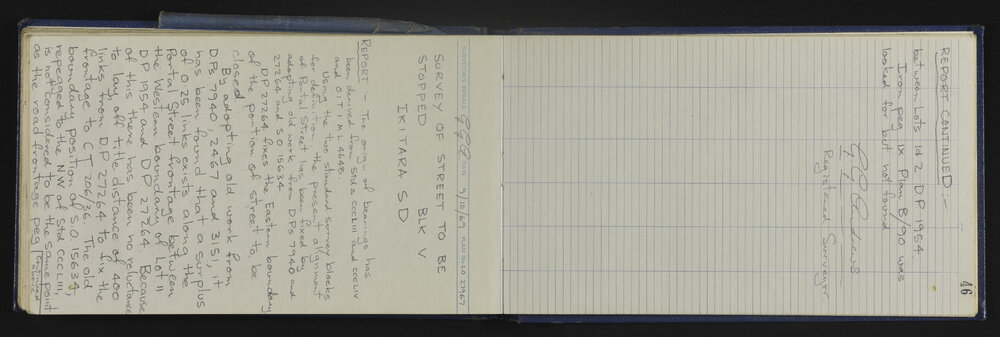 46
REPORT CONTINUED:-
between Lots 1 & 2 DP 1954
Iron peg IX Plan B/90 was
looked for but not found
Registered Surveyor
SURVEYOR'S INITIALS DATE 9/10/69 PLAN No. S.O 27967
SURVEY OF STREET TO BE
STOPPED BLK V
IKITARA SD
REPORT - The origin of bearings has
been derived from Stds CCCLIII and CCCLIV
and O.I.T I M.L 4648.
Using the two standard survey blocks
for definition, the present alignment
of Portal Street has been fixed by
adopting old work from DPs 7940 and
27264 and S.O. 15634.
DP 27264 fixes the Eastern boundary
of the portion of street to be
closed.
By adopting old work from
DPs 7940, 2467 and 3151, it
has been found that a surplus
of 0.25 links exists along the
Portal Street frontage between
the Western boundary of Lot 11
DP 1954 and DP 27264. Because
of this there has been no reluctance
to lay off title distance of 400
links from D.P 27264 to fix the
frontage to CT 206/36. The old
boundary position of S.O. 15634,
repegged to the NW of Std CCCLIII,
is not considered to be the same point
as the road frontage peg
Continued
above